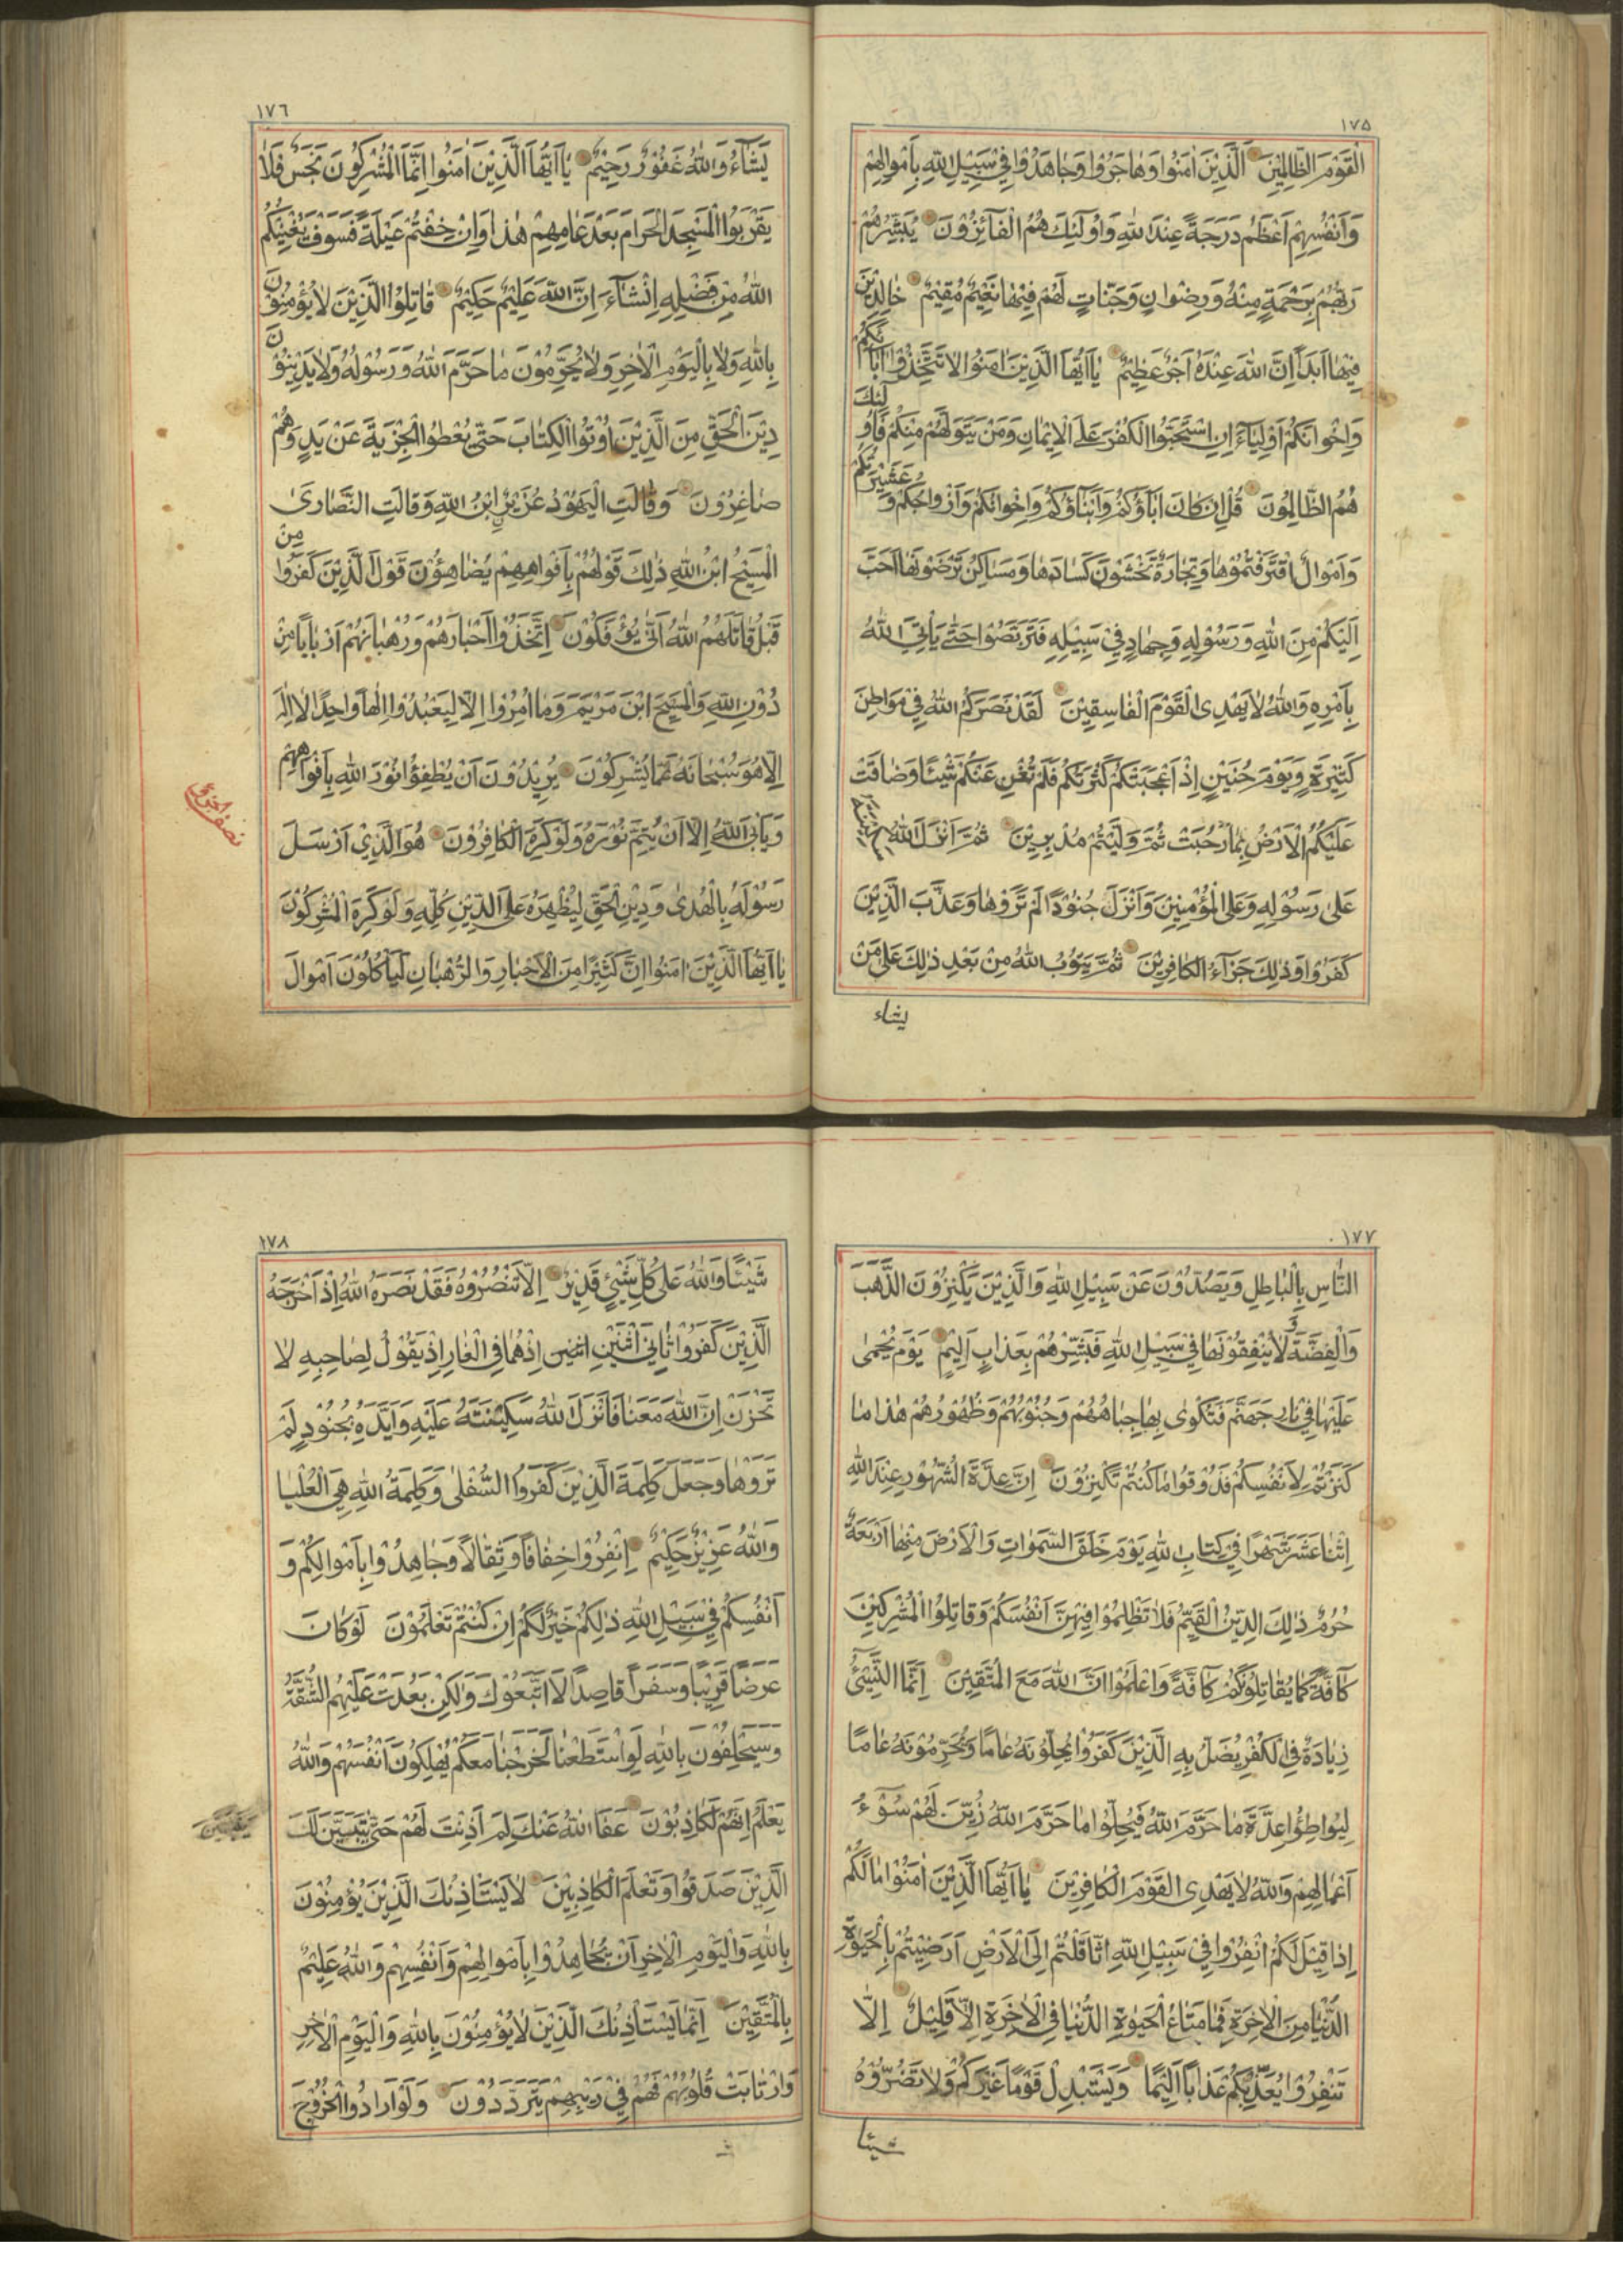 ١٧۵
الْقَوْمَ الظَّالِمِيْنَ الَّذِيْنَ اٰمَنُوا وَهٰاجَرُوا وَجٰاهَدُوا فِيْ سَبِيْلِ اللّٰهِ بِاَمْوٰالِهِمْ
وَاَنْفُسِهِمْ اَعْظَمُ دَرَجَةً عِنْدَ اللّٰهِ وَاُولٰئِكَ هُمُ الْفٰائِزُوْنَ يُبَشِّرُهُمْ
رَبُّهُمْ بِرَحْمَةٍ مِنْهُ وَرِضْوٰانٍ وَجَنّٰاتٍ لَهُمْ فِيْهٰا نَعِيْمٌ مُقِيْمٌ خٰالِدِيْنَ
فِيْهٰا اَبَدًا اِنَّ اللّٰهَ عِنْدَهُ اَجْرٌ عَظِيْمٌ يٰا اَيُّهَا الَّذِيْنَ اٰمَنُوْا لٰا تَتَّخِذُوْا اٰبٰائَكُمْ
وَاِخْوٰانَكُمْ اَوْلِيٰاءَ اِنِ اسْتَحَبُّوا الْكُفْرَ عَلَى الْاِيْمٰانِ وَمَنْ يَتَوَلَّهُمْ مِنْكُمْ فَاُولٰئِكَ
هُمُ الظّٰالِمُوْنَ قُلْ اِنْ كٰانَ اٰبٰاؤُكُمْ وَاَبْنٰاؤُكُمْ وَاِخْوٰانُكُمْ وَاَزْوٰاجُكُمْ وَعَشِيْرَتُكُمْ
وَاَمْوٰالٌ اقْتَرَفْتُمُوْهٰا وَتِجٰارَةٌ تَخْشَوْنَ كَسٰادَهٰا وَمَسٰاكِنُ تَرْضَوْنَهٰا اَحَبَّ
اِلَيْكُمْ مِنَ اللّٰهِ وَرَسُوْلِهِ وَجِهٰادٍ فِيْ سَبِيْلِهِ فَتَرَبَّصُوْا حَتّٰى يَأْتِيَ اللّٰهُ
بِاَمْرِهِ وَاللّٰهُ لٰا يَهْدِى الْقَوْمَ الْفٰاسِقِيْنَ لَقَدْ نَصَرَكُمُ اللّٰهُ فِيْ مَوٰاطِنَ
كَثِيْرَةٍ وَيَوْمَ حُنَيْنٍ اِذْ اَعْجَبَتْكُمْ كَثْرَتُكُمْ فَلَمْ تُغْنِ عَنْكُمْ شَيْئًا وَضٰاقَتْ
عَلَيْكُمُ الْاَرْضُ بِمٰا رَحُبَتْ ثُمَّ وَلَّيْتُمْ مُدْبِرِيْنَ ثُمَّ اَنْزَلَ اللّٰهُ سَكِيْنَتَهُ
عَلٰى رَسُوْلِهِ وَعَلَى الْمُؤْمِنِيْنَ وَاَنْزَلَ جُنُوْدًا لَمْ تَرَوْهٰا وَعَذَّبَ الَّذِيْنَ
كَفَرُوْا وَذٰلِكَ جَزٰاءُ الْكٰافِرِيْنَ ثُمَّ يَتُوْبُ اللّٰهُ مِنْ بَعْدِ ذٰلِكَ عَلٰى مَنْ
يشاء
١٧٦
يَشٰاءُ وَاللّٰهُ غَفُوْرٌ رَحِيْمٌ يٰا اَيُّهَا الَّذِيْنَ اٰمَنُوا اِنَّمَا الْمُشْرِكُوْنَ نَجَسٌ فَلٰا
يَقْرَبُوا الْمَسْجِدَ الْحَرٰامَ بَعْدَ عٰامِهِمْ هٰذٰا وَاِنْ خِفْتُمْ عَيْلَةً فَسَوْفَ يُغْنِيْكُمُ
اللّٰهُ مِنْ فَضْلِهِ اِنْ شٰاءَ اِنَّ اللّٰهَ عَلِيْمٌ حَكِيْمٌ قٰاتِلُوا الَّذِيْنَ لٰا يُؤْمِنُوْنَ
بِاللّٰهِ وَلٰا بِالْيَوْمِ الْاٰخِرِ وَلٰا يُحَرِّمُوْنَ مٰا حَرَّمَ اللّٰهُ وَرَسُوْلُهُ وَلٰا يَدِيْنُوْنَ
دِيْنَ الْحَقِّ مِنَ الَّذِيْنَ اُوْتُوا الْكِتٰابَ حَتّٰى يُعْطُوا الْجِزْيَةَ عَنْ يَدٍ وَهُمْ
صٰاغِرُوْنَ وَقٰالَتِ الْيَهُوْدُ عُزَيْرٌ ابْنُ اللّٰهِ وَقٰالَتِ النَّصٰارٰى
الْمَسِيْحُ ابْنُ اللّٰهِ ذٰلِكَ قَوْلُهُمْ بِاَفْوٰاهِهِمْ يُضٰاهِئُوْنَ قَوْلَ الَّذِيْنَ كَفَرُوْا مِنْ
قَبْلُ قٰاتَلَهُمُ اللّٰهُ اَنّٰى يُؤْفَكُوْنَ اِتَّخَذُوْا اَحْبٰارَهُمْ وَرُهْبٰانَهُمْ اَرْبٰابًا مِنْ
دُوْنِ اللّٰهِ وَالْمَسِيْحَ ابْنَ مَرْيَمَ وَمٰا اُمِرُوْا اِلّٰا لِيَعْبُدُوْا اِلٰهًا وٰاحِدًا لٰا اِلٰهَ
اِلّٰا هُوَ سُبْحٰانَهُ عَمّٰا يُشْرِكُوْنَ يُرِيْدُوْنَ اَنْ يُطْفِؤُا نُوْرَ اللّٰهِ بِاَفْوٰاهِهِمْ
وَيَأْبَى اللّٰهُ اِلّٰا اَنْ يُتِمَّ نُوْرَهُ وَلَوْ كَرِهَ الْكٰافِرُوْنَ هُوَ الَّذِيْ اَرْسَلَ
رَسُوْلَهُ بِالْهُدٰى وَدِيْنِ الْحَقِّ لِيُظْهِرَهُ عَلَى الدِّيْنِ كُلِّهِ وَلَوْ كَرِهَ الْمُشْرِكُوْنَ
يٰا اَيُّهَا الَّذِيْنَ اٰمَنُوا اِنَّ كَثِيْرًا مِنَ الْاَحْبٰارِ وَالرُّهْبٰانِ لَيَأْكُلُوْنَ اَمْوٰالَ
١٧٧
النّٰاسِ بِالْبٰاطِلِ وَيَصُدُّوْنَ عَنْ سَبِيْلِ اللّٰهِ وَالَّذِيْنَ يَكْنِزُوْنَ الذَّهَبَ
وَالْفِضَّةَ وَلٰا يُنْفِقُوْنَهٰا فِيْ سَبِيْلِ اللّٰهِ فَبَشِّرْهُمْ بِعَذٰابٍ اَلِيْمٍ يَوْمَ يُحْمٰى
عَلَيْهٰا فِيْ نٰارِ جَهَنَّمَ فَتُكْوٰى بِهٰا جِبٰاهُهُمْ وَجُنُوْبُهُمْ وَظُهُوْرُهُمْ هٰذٰا مٰا
كَنَزْتُمْ لِاَنْفُسِكُمْ فَذُوْقُوا مٰا كُنْتُمْ تَكْنِزُوْنَ اِنَّ عِدَّةَ الشُّهُوْرِ عِنْدَ اللّٰهِ
اثْنٰا عَشَرَ شَهْرًا فِيْ كِتٰابِ اللّٰهِ يَوْمَ خَلَقَ السَّمٰوٰاتِ وَالْاَرْضَ مِنْهٰا اَرْبَعَةٌ
حُرُمٌ ذٰلِكَ الدِّيْنُ الْقَيِّمُ فَلٰا تَظْلِمُوْا فِيْهِنَّ اَنْفُسَكُمْ وَقٰاتِلُوا الْمُشْرِكِيْنَ
كٰافَّةً كَمٰا يُقٰاتِلُوْنَكُمْ كٰافَّةً وَاعْلَمُوْا اَنَّ اللّٰهَ مَعَ الْمُتَّقِيْنَ اِنَّمَا النَّسِيْئُ
زِيٰادَةٌ فِى الْكُفْرِ يُضَلُّ بِهِ الَّذِيْنَ كَفَرُوْا يُحِلُّوْنَهُ عٰامًا وَيُحَرِّمُوْنَهُ عٰامًا
لِيُوٰاطِؤُا عِدَّةَ مٰا حَرَّمَ اللّٰهُ فَيُحِلُّوْا مٰا حَرَّمَ اللّٰهُ زُيِّنَ لَهُمْ سُوْءُ
اَعْمٰالِهِمْ وَاللّٰهُ لٰا يَهْدِى الْقَوْمَ الْكٰافِرِيْنَ يٰا اَيُّهَا الَّذِيْنَ اٰمَنُوْا مٰا لَكُمْ
اِذٰا قِيْلَ لَكُمُ انْفِرُوْا فِيْ سَبِيْلِ اللّٰهِ اثّٰاقَلْتُمْ اِلَى الْاَرْضِ اَرَضِيْتُمْ بِالْحَيٰوةِ
الدُّنْيٰا مِنَ الْاٰخِرَةِ فَمٰا مَتٰاعُ الْحَيٰوةِ الدُّنْيٰا فِى الْاٰخِرَةِ اِلّٰا قَلِيْلٌ اِلّٰا
تَنْفِرُوْا يُعَذِّبْكُمْ عَذٰابًا اَلِيْمًا وَيَسْتَبْدِلْ قَوْمًا غَيْرَكُمْ وَلٰا تَضُرُّوْهُ
شيئا
١٧٨
شَيْئًا وَاللّٰهُ عَلٰى كُلِّ شَيْئٍ قَدِيْرٌ اِلّٰا تَنْصُرُوْهُ فَقَدْ نَصَرَهُ اللّٰهُ اِذْ اَخْرَجَهُ
الَّذِيْنَ كَفَرُوْا ثٰانِيَ اثْنَيْنِ اثنين اِذْ هُمٰا فِى الْغٰارِ اِذْ يَقُوْلُ لِصٰاحِبِهِ لٰا
تَحْزَنْ اِنَّ اللّٰهَ مَعَنٰا فَاَنْزَلَ اللّٰهُ سَكِيْنَتَهُ عَلَيْهِ وَاَيَّدَهُ بِجُنُوْدٍ لَمْ
تَرَوْهٰا وَجَعَلَ كَلِمَةَ الَّذِيْنَ كَفَرُوا السُّفْلٰى وَكَلِمَةُ اللّٰهِ هِيَ الْعُلْيٰا
وَاللّٰهُ عَزِيْزٌ حَكِيْمٌ اِنْفِرُوْا خِفٰافًا وَثِقٰالًا وَجٰاهِدُوْا بِاَمْوٰالِكُمْ وَ
اَنْفُسِكُمْ فِيْ سَبِيْلِ اللّٰهِ ذٰلِكُمْ خَيْرٌ لَكُمْ اِنْ كُنْتُمْ تَعْلَمُوْنَ لَوْ كٰانَ
عَرَضًا قَرِيْبًا وَسَفَرًا قٰاصِدًا لَاتَّبَعُوْكَ وَلٰكِنْ بَعُدَتْ عَلَيْهِمُ الشُّقَّةُ
وَسَيَحْلِفُوْنَ بِاللّٰهِ لَوِ اسْتَطَعْنٰا لَخَرَجْنٰا مَعَكُمْ يُهْلِكُوْنَ اَنْفُسَهُمْ وَاللّٰهُ
يَعْلَمُ اِنَّهُمْ لَكٰاذِبُوْنَ عَفَا اللّٰهُ عَنْكَ لِمَ اَذِنْتَ لَهُمْ حَتّٰى يَتَبَيَّنَ لَكَ
الَّذِيْنَ صَدَقُوْا وَتَعْلَمَ الْكٰاذِبِيْنَ لٰا يَسْتَأْذِنُكَ الَّذِيْنَ يُؤْمِنُوْنَ
بِاللّٰهِ وَالْيَوْمِ الْاٰخِرِ اَنْ يُجٰاهِدُوْا بِاَمْوٰالِهِمْ وَاَنْفُسِهِمْ وَاللّٰهُ عَلِيْمٌ
بِالْمُتَّقِيْنَ اِنَّمٰا يَسْتَأْذِنُكَ الَّذِيْنَ لٰا يُؤْمِنُوْنَ بِاللّٰهِ وَالْيَوْمِ الْاٰخِرِ
وَارْتٰابَتْ قُلُوْبُهُمْ فَهُمْ فِيْ رَيْبِهِمْ يَتَرَدَّدُوْنَ وَلَوْ اَرٰادُوا الْخُرُوْجَ